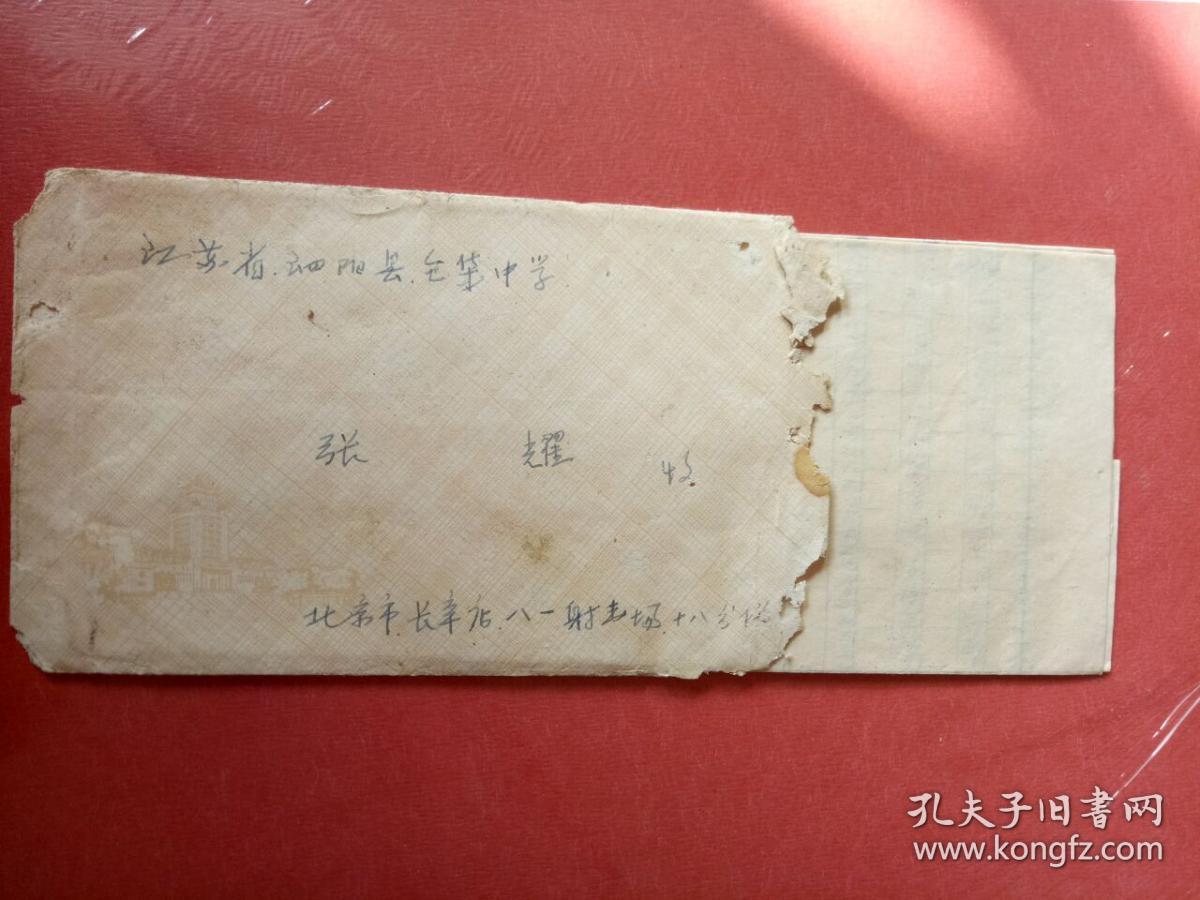 江苏省.泗阳县.仓集中学
张 耀 收
北京市.长辛店.八一射击场.十八分队
孔夫子旧书网
www.kongfz.com